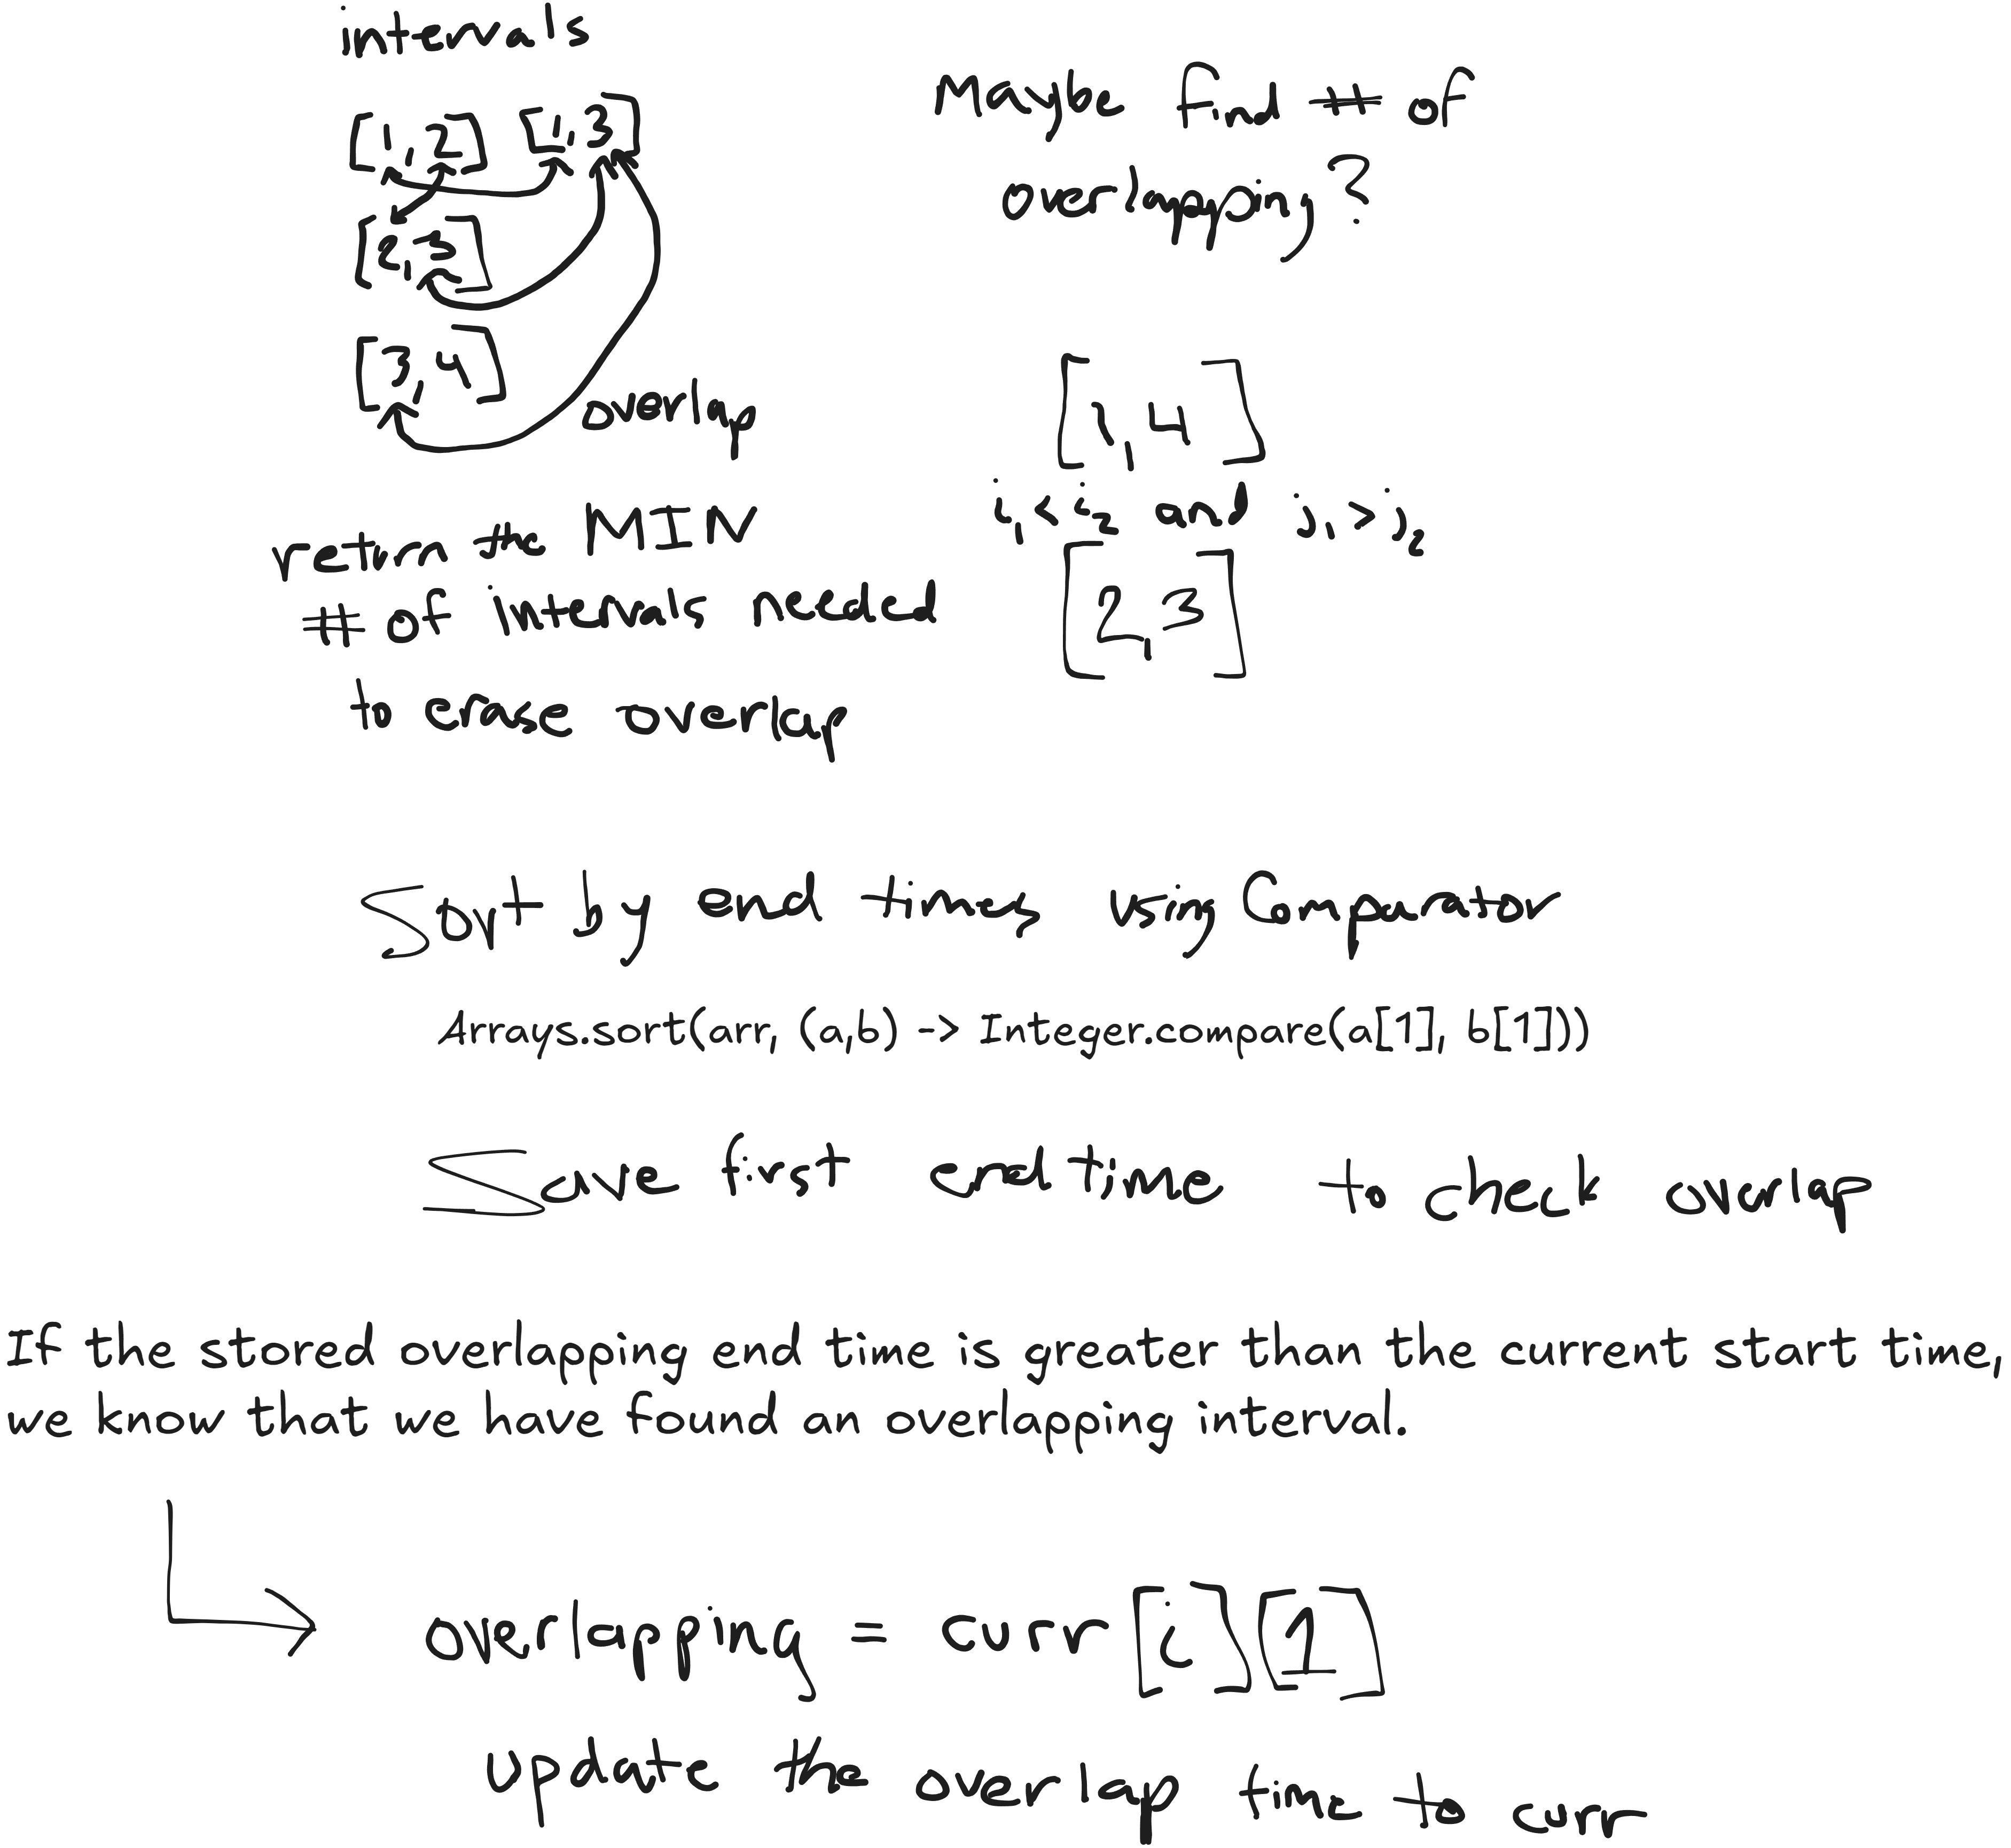 intervals
[1,2] [1,3]
[2,3]
[3,4]
overlap
return the MIN
# of intervals needed
to erase overlap
Maybe find # of
overlapping?
[1,4]
i₁<i₂ and j₁>j₂
[2,3]
Sort by end times using Comparator
Arrays.sort(arr, (a,b) -> Integer.compare(a[1], b[1]))
Save first endtime to check overlap
If the stored overlapping end time is greater than the current start time,
we know that we have found an overlapping interval.
overlapping = curr[i][1]
update the overlap time to curr